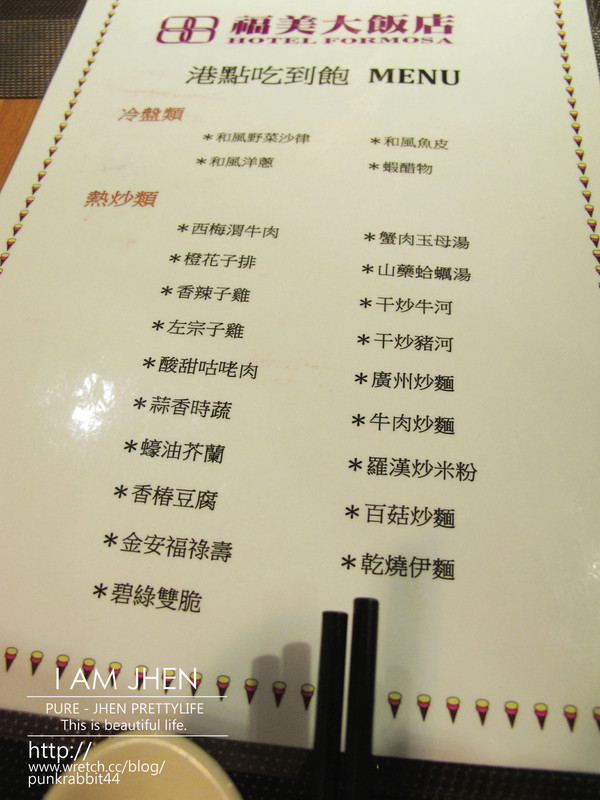 福美大飯店
HOTEL FORMOSA
港點吃到飽 MENU
冷盤類
*和風野菜沙律
*和風魚皮
*和風洋蔥
*蝦醋物
熱炒類
*西梅渭牛肉
*橙花子排
*香辣子雞
*左宗子雞
*酸甜咕咾肉
*蒜香時蔬
*蠔油芥蘭
*香椿豆腐
*金安福祿壽
*碧綠雙脆
*蟹肉玉母湯
*山藥蛤蠣湯
*干炒牛河
*干炒豬河
*廣州炒麵
*牛肉炒麵
*羅漢炒米粉
*百菇炒麵
*乾燒伊麵
I AM JHEN
PURE - JHEN PRETTYLIFE
This is beautiful life.
http://
www.wretch.cc/blog/
punkrabbit44